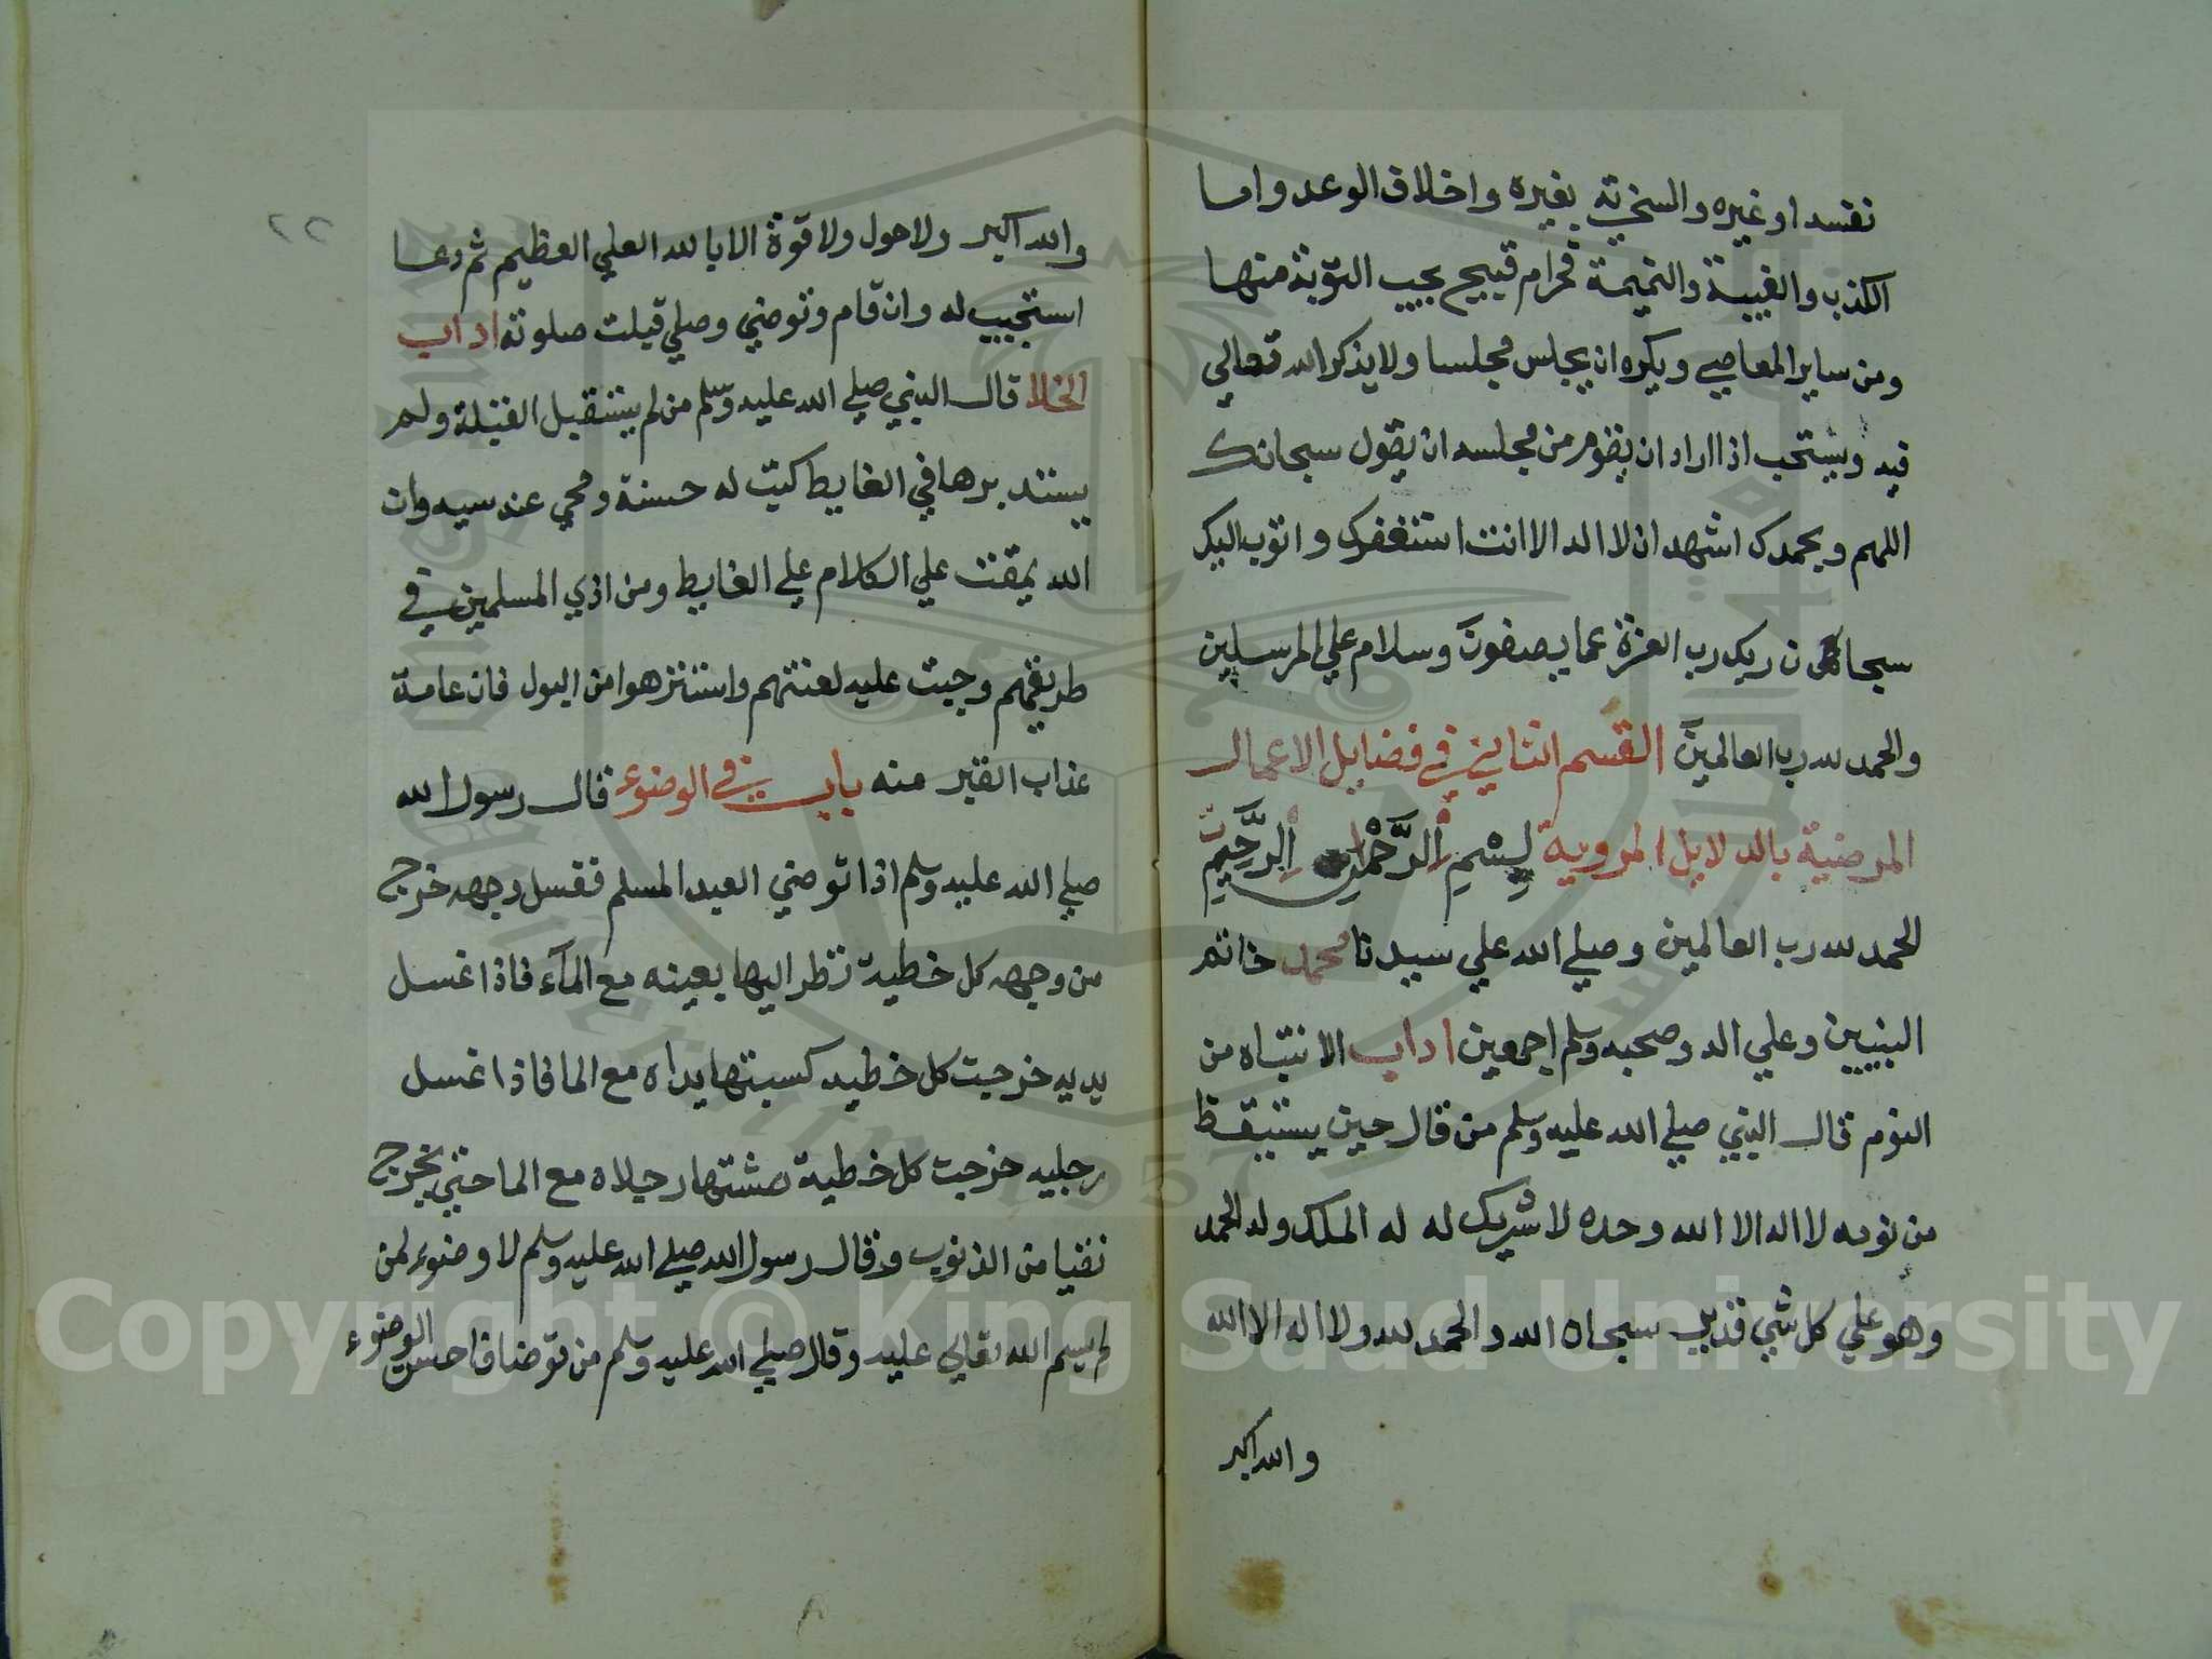 نفسه او غيره والسخرية بغيره واخلاف الوعد واما
الكذب والغيبة والنميمة فحرام قبيح يجب التوبة منها
ومن ساير المعاصي ويكره ان يجلس مجلسا ولا يذكر الله تعالي
فيه ويستحب اذا اراد ان يقوم من مجلسه ان يقول سبحانك
اللهم وبحمدك اشهد ان لا اله الا انت استغفرك واتوب اليك
سبحان ربك رب العزة عما يصفون وسلام علي المرسلين
والحمد لله رب العالمين القسم الثاني في فضايل الاعمال
المرضية بالدلايل المروية بسم الرحمن الرحيم
الحمد لله رب العالمين وصلي الله علي سيدنا محمد خاتم
النبيين وعلي اله وصحبه وسلم اجمعين اداب الانتباه من
النوم قال النبي صلي الله عليه وسلم من قال حين يستيقظ
من نومه لا اله الا الله وحده لا شريك له له الملك وله الحمد
وهو علي كل شي قدير سبحان الله والحمد لله ولا اله الا الله
والله اكبر
٢٢
والله اكبر ولا حول ولا قوة الا بالله العلي العظيم ثم دعا
استجيب له وان قام وتوضي وصلي قبلت صلوته اداب
الخلا قال النبي صلي الله عليه وسلم من لم يستقبل القبلة ولم
يستدبرها في الغايط كتبت له حسنة ومحي عنه سيه وان
الله يمقت علي الكلام علي الغايط ومن اذي المسلمين في
طريقهم وجبت عليه لعنتهم واستنزهوا من البول فان عامة
عذاب القبر منه باب في الوضوء قال رسول الله
صلي الله عليه وسلم اذا توضي العبد المسلم فغسل وجهه خرج
من وجهه كل خطية نظر اليها بعينه مع المآء فاذا غسل
يديه خرجت كل خطيه كسبتها يداه مع الما فاذا غسل
رجليه خرجت كل خطية مشتها رجلاه مع الما حتي يخرج
نقيا من الذنوب وقال رسول الله صلي الله عليه وسلم لا وضوء لمن
لم يسم الله تعالي عليه وقال صلي الله عليه وسلم من توضا فاحسن الوضوء
Copyright © King Saud University